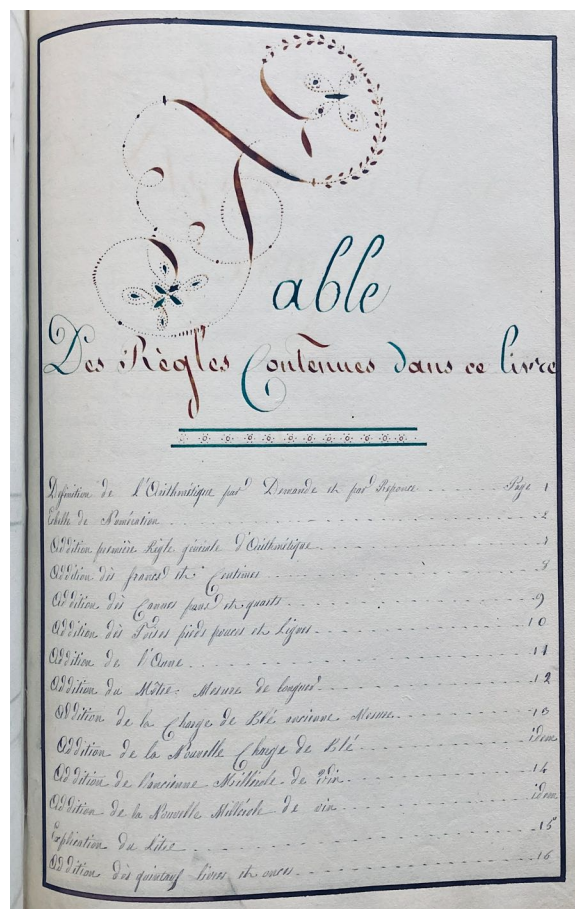 Table
Des Règles Contenues dans ce livre
Définition de l'Arithmétique par Demande et par Réponse Page 1
Echelle de Numération 2
Addition première Règle générale d'Arithmétique
Addition dès francs et Centimes 8
Addition dès Cannes pans et quarts 9
Addition dès Toises pieds pouces et Lignes 10
Addition de l'Aune 11
Addition du Mètre Mesure de longueur 12
Addition de la Charge de Blé ancienne Mesure 13
Addition de la Nouvelle Charge de Blé idem
Addition de l'ancienne Millérole de Vin 14
Addition de la Nouvelle Millérole de vin idem
Explication du Litre 15
Addition dès quintaux livres et onces 16